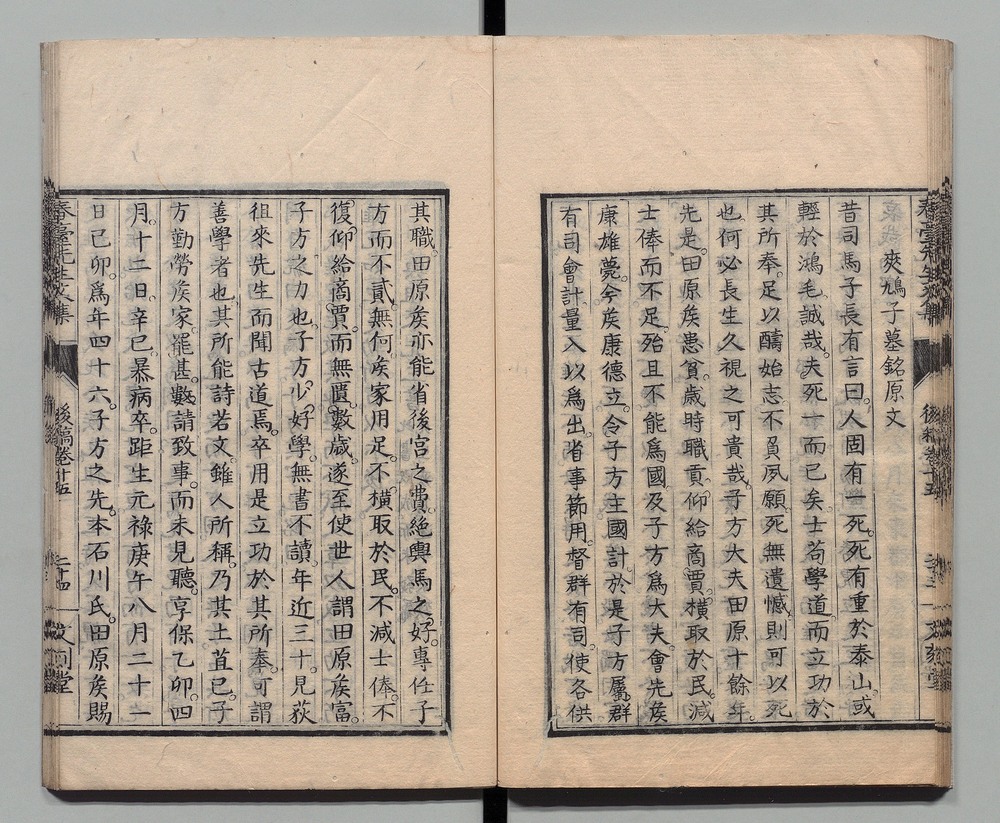 爽鳩子墓銘原文
昔司馬子長有言曰。人固有一死。死有重於泰山。或
輕於鴻毛。誠哉。夫死一而已矣。士苟學道而立功於
其所奉。足以酬始志。不負夙願。死無遺憾。則可以死
也。何必長生久視之可貴哉。子方大夫田原十餘年。
先是。田原矦患貧。歲時職貢。仰給商賈。橫取於民。減
士俸而不足。殆且不能爲國。及子方爲大夫。會先矦
康雄薨。今矦康德立。令子方主國計。於是子方屬群
有司會計量入以爲出。省事節用。督群有司。使各供
其職。田原矦亦能省後宮之費。絶輿馬之好。專任子
方而不貳。無何矦家用足。不橫取於民。不減士俸。不
復仰給商賈。而無匱。數歲。遂至使世人謂田原矦富。
子方之力也。子方少好學。無書不讀。年近三十。見荻
徂來先生而聞古道焉。卒用是立功於其所奉。可謂
善學者也。其所能詩若文。雖人所稱。乃其土苴已。子
方勤勞矦家。罷甚。數請致事。而未見聽。享保乙卯。四
月。十二日。辛巳。暴病卒。距生元禄庚午八月二十一
日己卯。爲年四十六。子方之先。本石川氏。田原矦賜
後稿卷十五